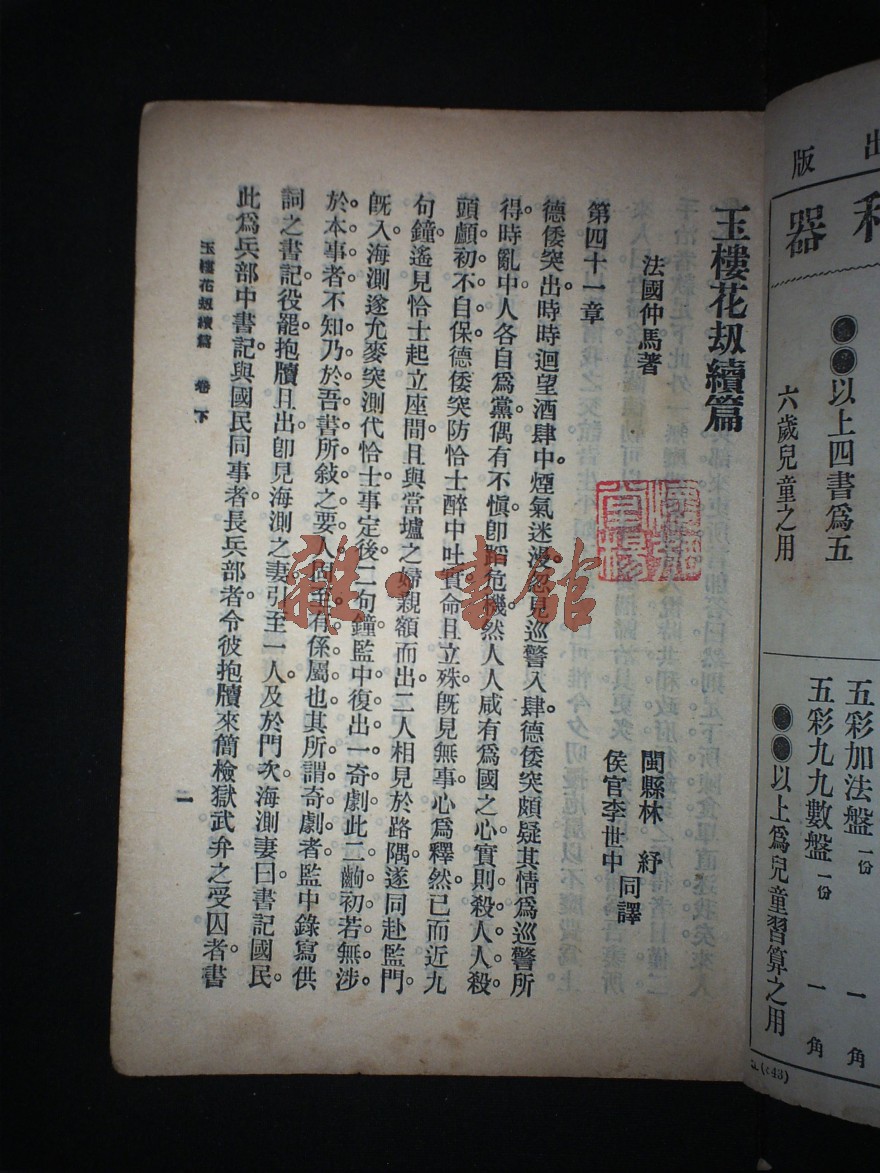 玉樓花刼續篇
法國仲馬著
閩縣林紓
侯官李世中
同譯
第四十一章
德倭突出時時迴望酒肆中煙氣迷漫。忽見巡警入肆德倭突頗疑其情爲巡警所
得時亂中人各自爲黨偶有不愼卽蹈危機然人人咸有爲國之心實則殺人人殺
頭顱初不自保德倭突防恰士醉中吐實命且立殊旣見無事心爲釋然已而近九
句鐘遙見恰士起立座間且與當壚之婦親額而出二人相見於路隅遂同赴監門
旣入海測遂允麥突測代恰士事定後二句鐘監中復出一奇劇此二齣初若無涉
於本事者不知乃於吾書所敍之要人固至有係屬也其所謂奇劇者監中錄寫供
詞之書記役罷抱牘且出卽見海測之妻引至一人及於門次海測妻曰書記國民
此爲兵部中書記與國民同事者長兵部者令彼抱牘來簡檢獄武弁之受囚者書
玉樓花刼續篇 卷下
一
雜·書館
出版
利器
●●以上四書爲五
六歲兒童之用
五彩加法盤 一份 一角
五彩九九數盤 一份 一角
●●以上爲兒童習算之用